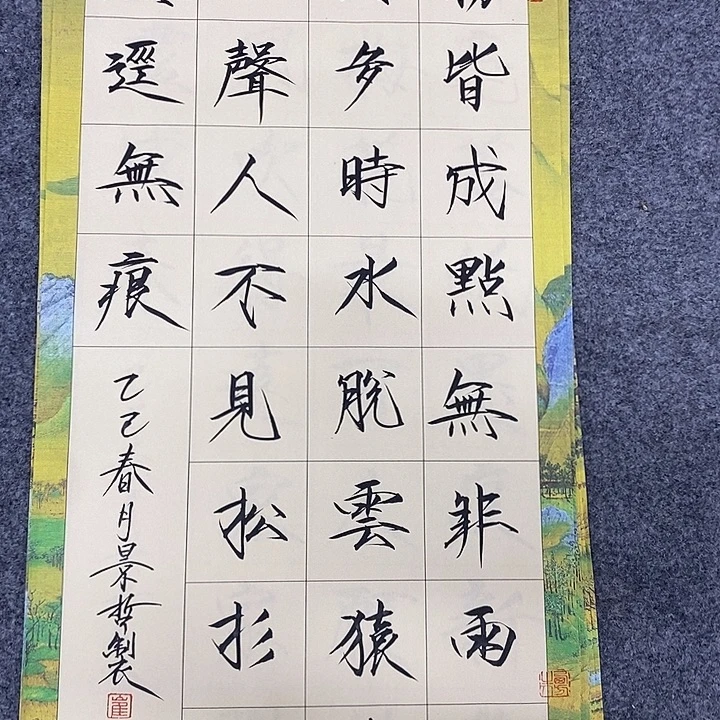 皆成點無非雨
多時水脫雲猿
聲人不見松杉
逕無痕
乙巳春月景哲製
崔